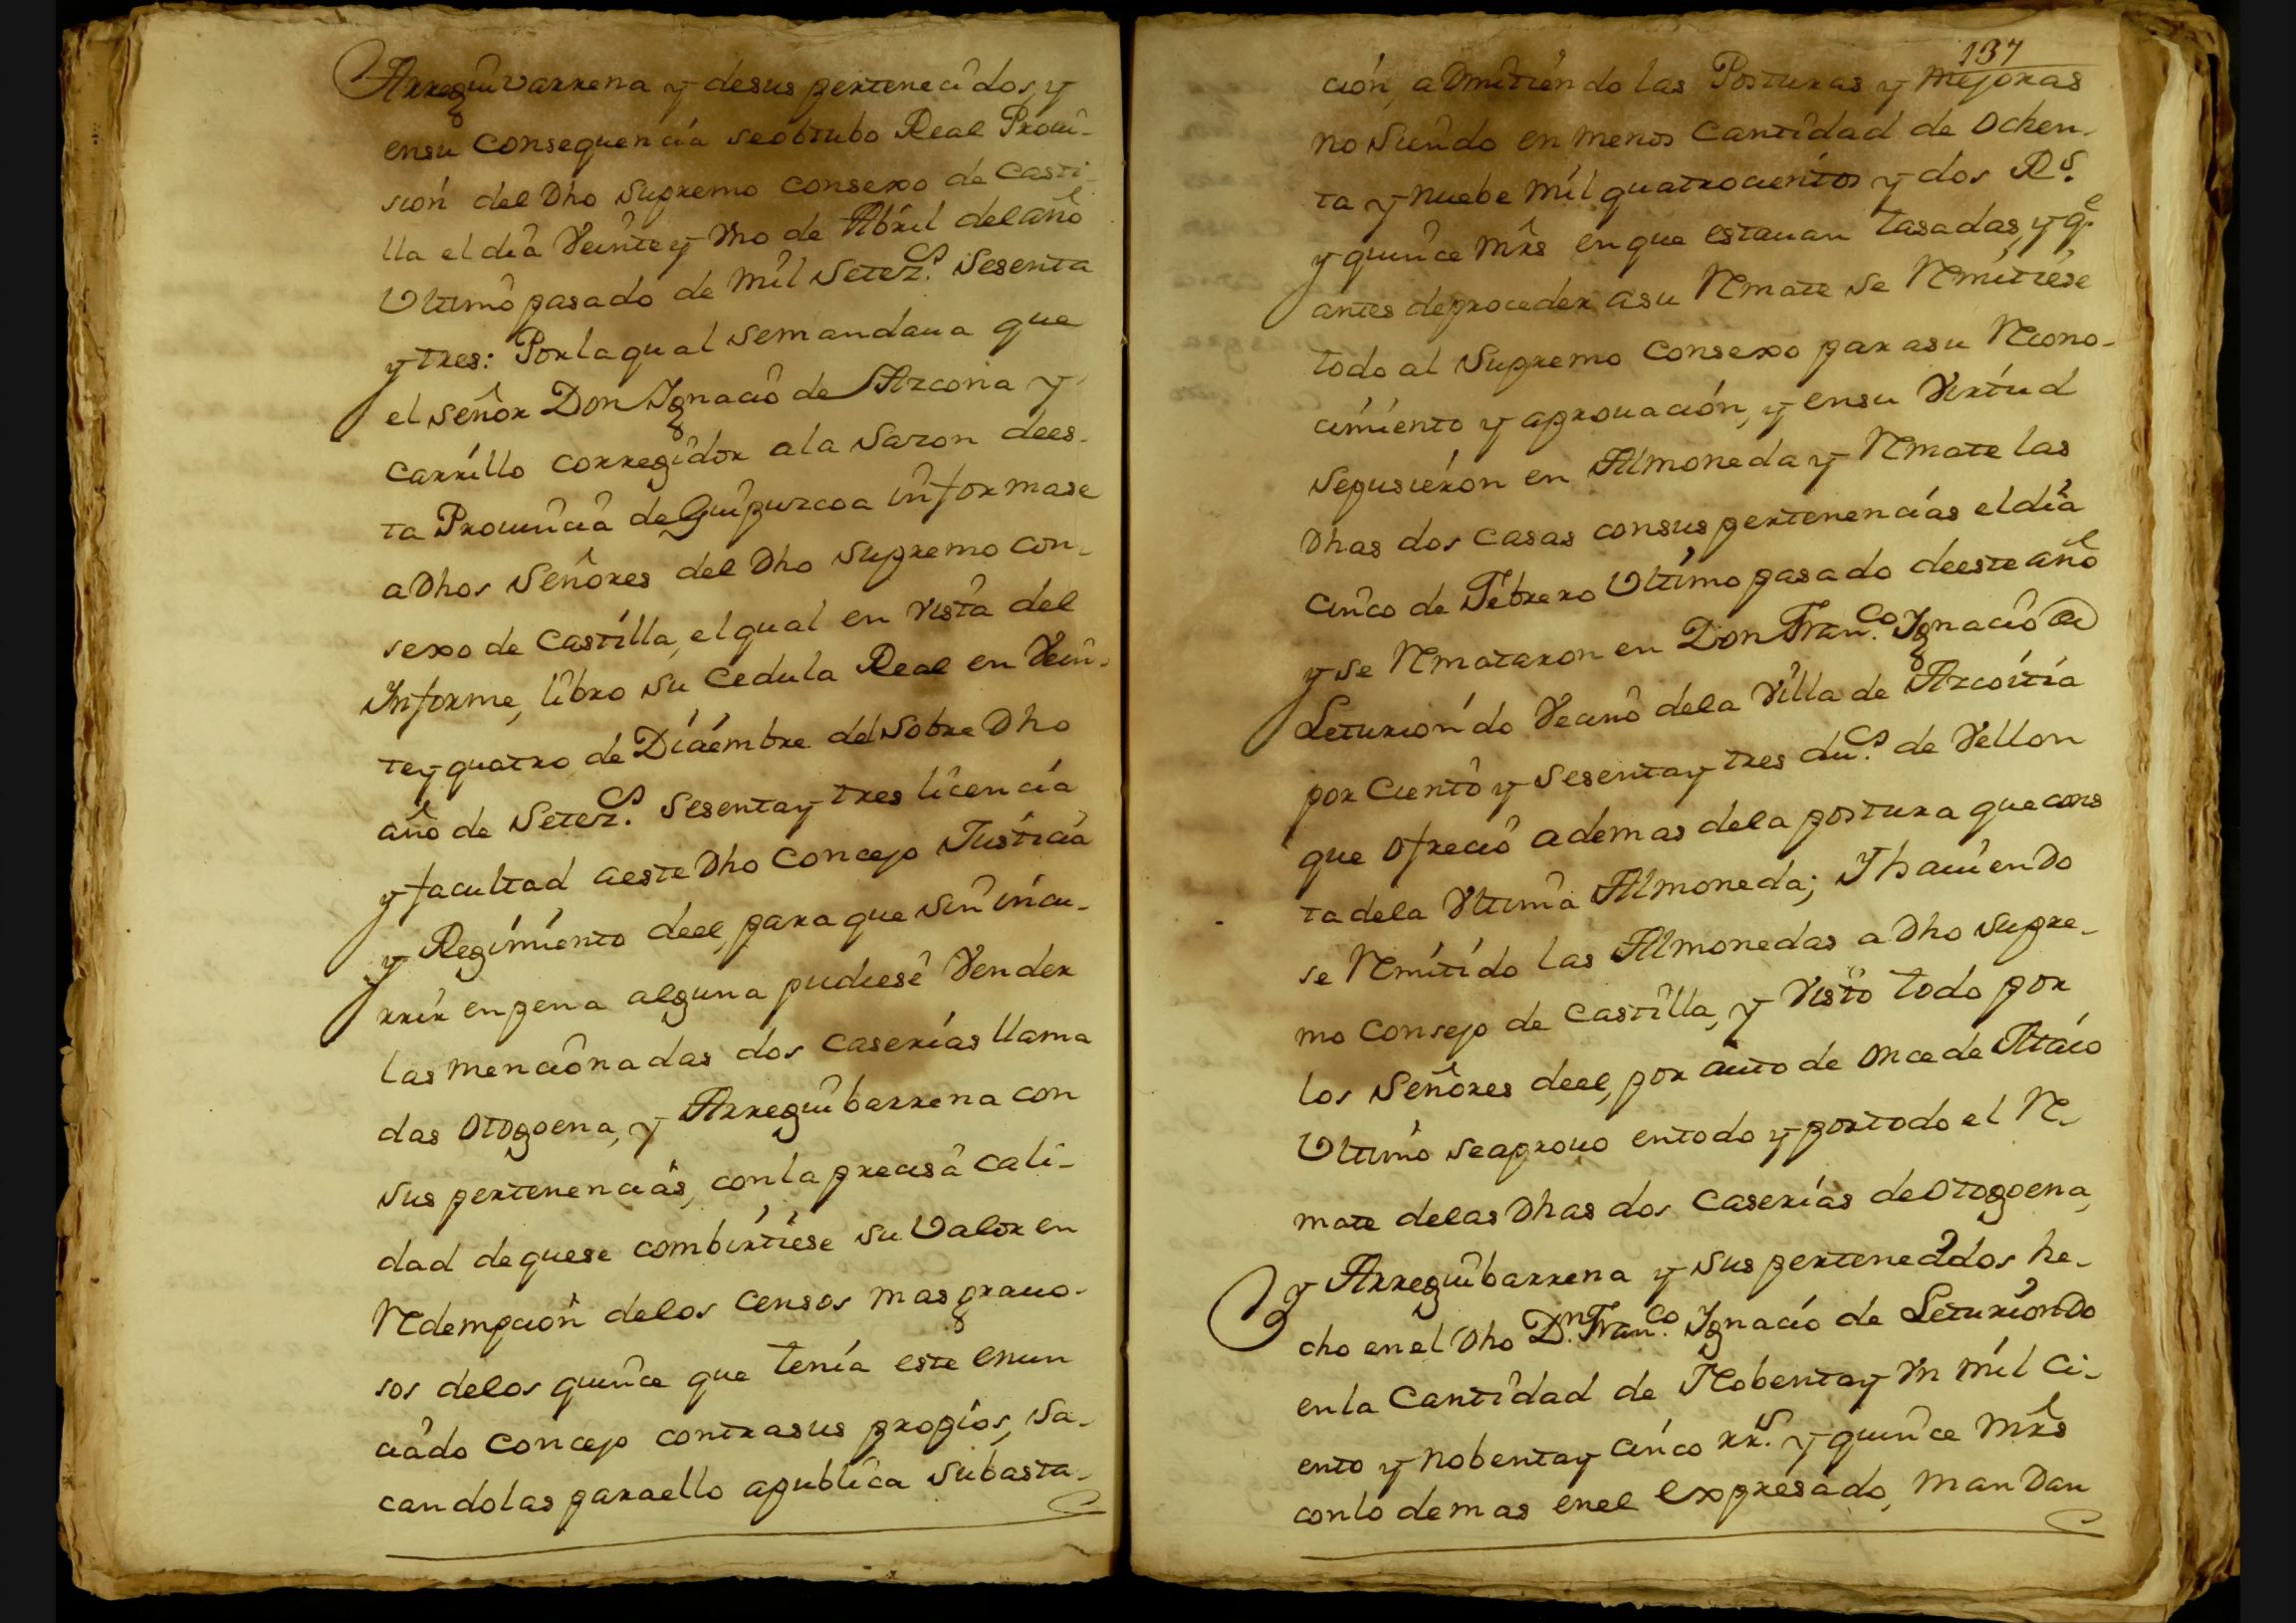 Arreguivarrena y desus pertenecidos, y
ensu consequencia seobtubo Real Provi-
sion del Dho Supremo consexo de Casti-
lla el dia Veinte y Vno de Abril del año
Vltimo pasado de mil Setez.s Sesenta
y tres: Porlaqual semandaua que
el señor Don Ignacio de Azcona y
Carrillo corregidor ala sazon dees-
ta Prouincia de Guipuzcoa informase
a Dhos Señores del Dho Supremo con-
sexo de Castilla, elqual en vista del
Informe, libro su Cedula Real en Vein-
tey quatro de Diciembre del sobre Dho
año de Setez.s Sesentay tres licencia
y facultad aeste Dho Concejo Justicia
y Regimiento deel, para que sin incu-
rrir enpena alguna pudiese Vender
las mencionadas dos caserias llama
das Otogoena, y Arreguibarrena con
sus pertenencias, conla precisa cali-
dad dequese combirtiese su Valor en
Redempcion delos censos mas grauo-
sos delos quince que tenia este enun
ciado Concejo contrasus propios, sa-
candolas paraello apublica subasta-
137
cion, aDmitiendo las Posturas y mejoras
no siendo en menos Cantidad de Ochen-
ta y nuebe mil quatrocientos y dos R.s
y quince mrs enque estauan tasadas, y q.e
antes deproceder asu Remate se Remitiese
todo al Supremo Consexo parasu Recono-
cimiento y aprouacion, y ensu Virtud
sepusieron en Almoneda y Remate las
Dhas dos casas consus pertenencias eldia
cinco de Febrero Vltimo pasado deeste año
y se Remataron en Don Fran.co Ignacio de
Leturiondo Vecino dela Villa de Azcoitia
por Ciento y Sesentay tres du.s de Vellon
que ofrecio ademas dela postura que cons
ta dela Vltima Almoneda; Y hauienDo
se Remitido las Almonedas a Dho Supre-
mo Consejo de Castilla, y Visto todo por
los Señores deel, por auto de once de Maio
Vltimo seaprouo entodo y portodo el Re-
mate delas Dhas dos Caserias de Otogoena,
y Arreguibarrena y sus pertenecidos he-
cho enel Dho D.n Fran.co Ignacio de LeturionDo
enla Cantidad de Nobentay Vn mil Ci-
ento y nobentay cinco rr.s y quince mrs
conlo demas enel expresado, manDan